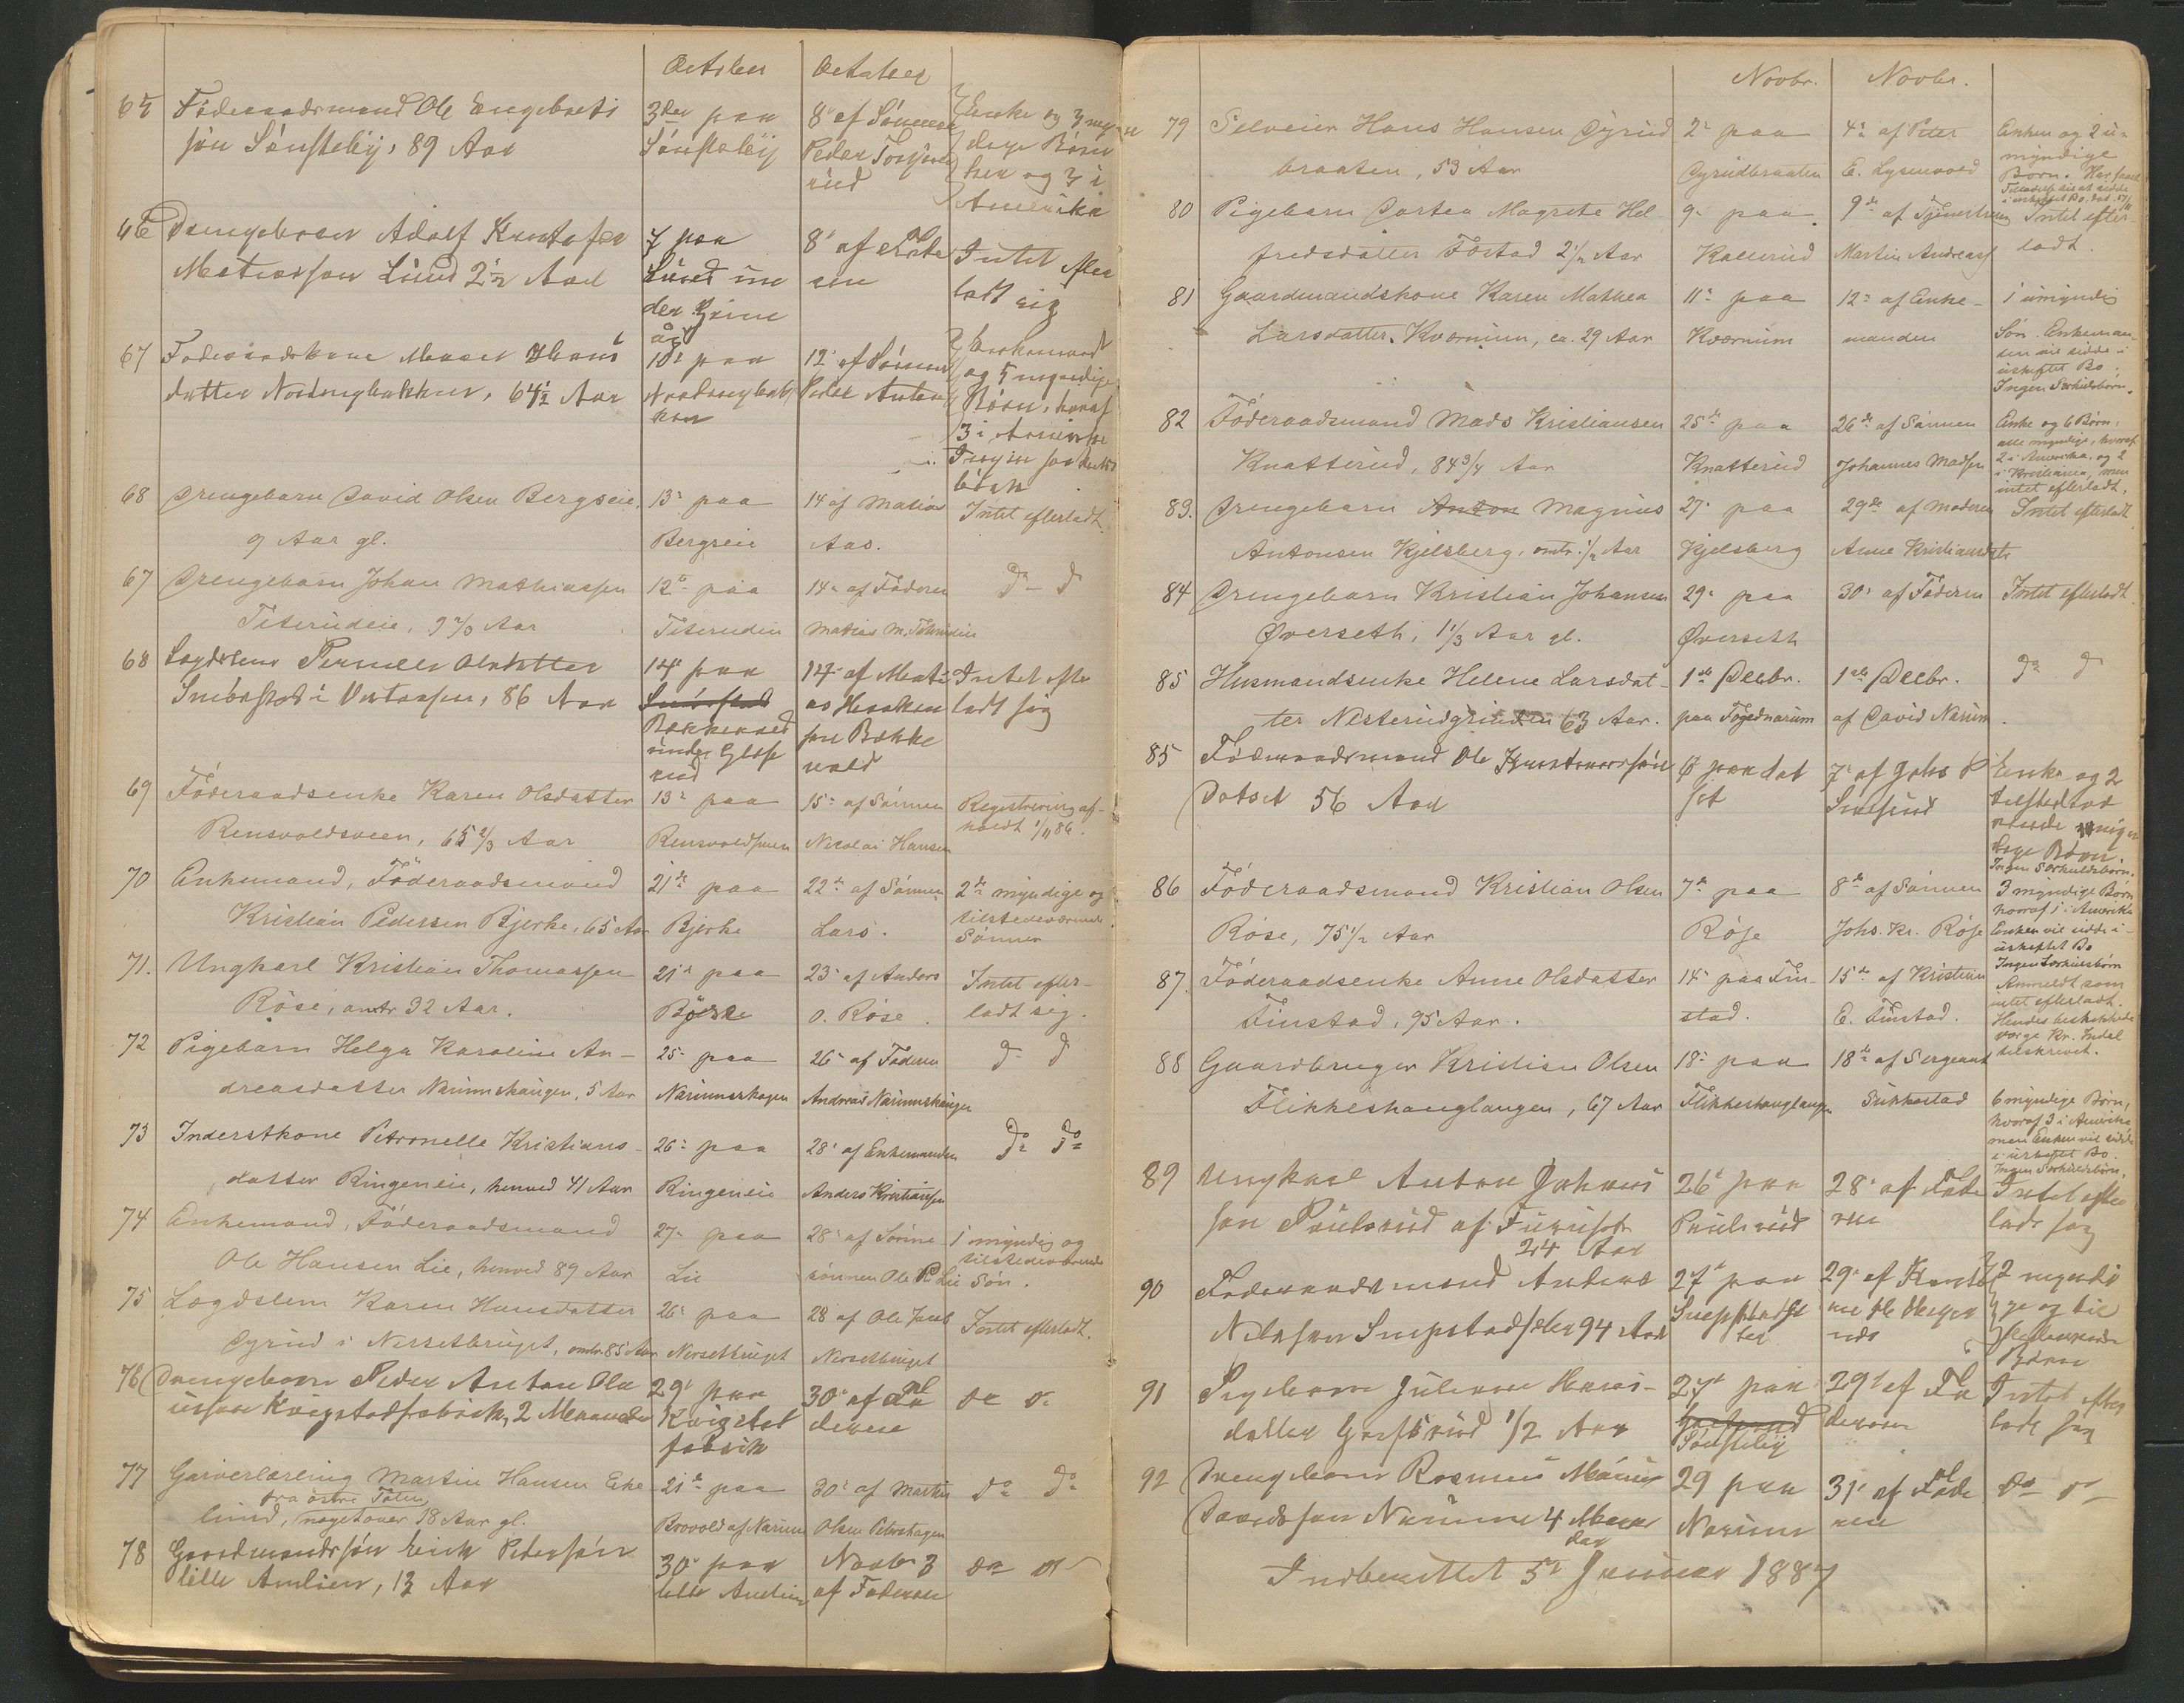 October October
65 Föderaadsmand Ole Engebrets
sön Sönsteby, 89 Aar
3die paa
Sönsteby
8' af Sönnen
Peder
rud
Enke og 3 myn
dige Börn
her og 3 i
Amerika
66 Drengebarn Adolf Kristofer
Matiassen Lund 2½ Aar
7 paa
Lund un
der
8' af Fade
ren
Intet efter
ladt sig
67 Föderaadskone
datter Nordengbakken, 64½ Aar
10' paa
Nordengbak
ken
12' af Sönnen
Peder Anton
Enkemand
og 5 myndige
Börn, hvoraf
3 i Amerika
Ingen særkulds
börn
68 Drengebarn David Olsen Bergseie,
9 Aar gl.
13' paa
Bergseie
14 af Matias
Aas.
Intet efterladt
67 Drengebarn Johan Mathiassen
Titerudeie, 9 2/3 Aar
12te paa
Titerudeie
14' af Faderen
Matias M. Titerudeie
Do Do
68 Lægdslem Pernille Olsdatter
Sniberstad i Vestaasen, 86 Aar
14' paa
Bækkevold
under Glæse
rud
14' af Mati
as Haaken
sen Bække
vold
Intet efter
ladt sig
69 Föderaadsenke Karen Olsdatter
Rensvoldsveen, 65 2/3 Aar
13' paa
Rensvoldsveen
15' af Sönnen
Nicolai Hansen
Registrering af-
holdt 1/11 86.
70 Enkemand, Föderaadsmand
Kristian Pedersen Bjerke, 65 Aar
21de paa
Bjerke
22de af Sönnen
Lars.
2de myndige og
tilstedeværende
Sönner
71. Ungkarl Kristian Thomassen
Röse, omtr 32 Aar.
21' paa
Röse
23' af Anders
O. Röse
Intet efter-
ladt sig.
72 Pigebarn Helga Karoline An-
dreasdatter Narumshaugen, 5 Aar
25' paa
Narumshagen
26' af Faderen
Andreas Narumshaugen
Do Do
73 Inderstkone Petronelle Kristians-
datter Ringeneie, henved 41 Aar
26' paa
Ringeneie
28' af Enkemanden
Anders Kristiansen
Do Do
74 Enkemand, Föderaadsmand
Ole Hansen Lie, henved 89 Aar
27' paa
Lie
28' af Sönne-
sönnen Ole P. Lie
1 myndig og
tilstedeværende
Sön.
75 Lægdslem Karen Hansdatter
Dyrud i Nersetbruget, omtr. 85 Aar
26' paa
Nersetbruget
28 af Ole Jacob
Nersetbruget
Intet efterladt.
76 Drengebarn Peder Anton Ola
ussen Kvigstadfabrik, 2 Maaneder
29' paa
Kvigstad
fabrik
30' af Fa
deren
Do Do
77 Garverlærling Martin Hansen Eke
fra östre Toten
lund, noget over 18 Aar gl.
21de paa
Brovold af Narum
30' af Martin
Olsen Petershagen
Do Do
78 Gaardmandssön Erik Pedersön
lille Amlien, 13 Aar
30' paa
lille Amlien
Novbr 3
af Faderen
Do Do
Novbr. Novbr.
79 Selveier Hans Hansen Dyrud
braaten, 53 Aar
2' paa
Dyrudbraaten
4' af Peter
E. Lysenvold
Enken og 2 u-
myndige
Börn. Har faaet
80 Pigebarn Dortea Magrete Hel-
fredsdatter Fostad 2½ Aar
9' paa
Kallerud
9de af Tjeneren
Martin Andreass
Intet efter-
ladt.
81 Gaardmandskone Karen Mathea
Larsdatter Kværnum, ca. 29 Aar
11' paa
Kværnum
12' af Enke-
manden
1 umyndig
Sön. Enkeman-
den vil sidde i
uskiftet Bo.
Ingen Særkulsbörn.
82 Föderaadsmand Mads Kristiansen
Knatterud, 84 3/4 Aar
25de paa
Knatterud
26de af Sönnen
Johannes Madsen
Enke og 6 Börn,
alle myndige, hvoraf
2 i Amerika. og 2
i Kristiania, men
intet efterladt.
83. Drengebarn Anton Magnus
Antonsen Kjelsberg, omtr. ½ Aar
27' paa
Kjelsberg
29de af Moderen
Anne Kristiansdatr
Intet efterladt
84 Drengebarn Kristian Johansen
Överseth, 1 1/3 Aar gl.
29' paa
Överseth
30' af Faderen
Intet efterladt
85 Husmandsenke Helene Larsdat-
ter Nesterudgrinden 63 Aar.
1ste Decbr.
paa Fögednarum
1ste Decbr.
af David Narum
Do Do
85 Föderaadsmand Ole
Dotset 56 Aar
6' paa Dot
set
7' af Johs P
Enke og 2
tilstedevæ
rende umyn
dige Börn.
Ingen Særkuldsbörn.
86 Föderaadsmand Kristian Olsen
Röse, 75½ Aar
7de paa
Röse
8de af Sönnen
Johs. Kr. Röse
3 myndige Börn
hvoraf 1 i Amerika
Enken vil sidde i
uskiftet Bo
Ingen Særkulsbörn
87. Föderaadsenke Anne Olsdatter
Finstad, 95 Aar.
14' paa Fin-
stad.
15de af Kristian
E. Finstad.
Anmeldt som
intet efterladt.
Hendes beskikkede
Værge Kr. Indal
tilskrevet.
88 Gaardbruger Kristian Olsen
Flikkeshauglangen, 67 Aar
18' paa
Flikkeshauglangen
18de af Sergeant
Sukkestad
6 myndige Börn,
hvoraf 3 i Amerika
men Enken vil sidde
i uskiftet Bo.
Ingen Særkulsbörn.
89 Ungkarl Anton Johanes
sen Paulsrud af Furuset
24 Aar
26' paa
Paulsrud
28' af Fade
ren
Intet efter
ladt sig
90 Föderaadsmand Anders
Nilssen 94 Aar
27' paa
29' af
2 myndi
ge og til
stedeværende
Börn
91 Pigebarn Juliane Hans-
datter ½ Aar
27' paa
Sönsteby
29' af Fa
deren
Intet efter
ladt sig
92 Drengebarn Rasmus
Davidssen Narum 4 Maane
der
29 paa
Narum
31' af Fade
ren
Do Do
Indberettet 5' Januar 1887